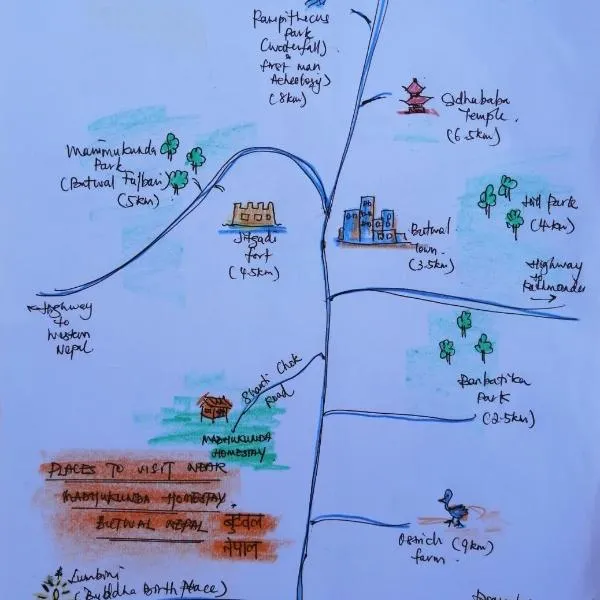 Park
(Waterfall)
&
first man
(8km)
Sidhababa
Temple.
(6.5km)
Manimukunda
Park
(Butwal Fulbari)
(5km)
Jitgadi
fort
(4.5km)
Butwal
Town.
(3.5km)
Hill Park
(4km)
Highway
to
Kathmandu
Highway
to
Western
Nepal
Shanti Chok
Road
Banbatika
Park
(2.5km)
MADHUKUNDA
HOMESTAY
PLACES TO VISIT NEAR
MADHUKUNDA HOMESTAY
BUTWAL NEPAL बुटवल
नेपाल
Ostrich (9km)
farm.
Lumbini
(Buddha Birth Place)